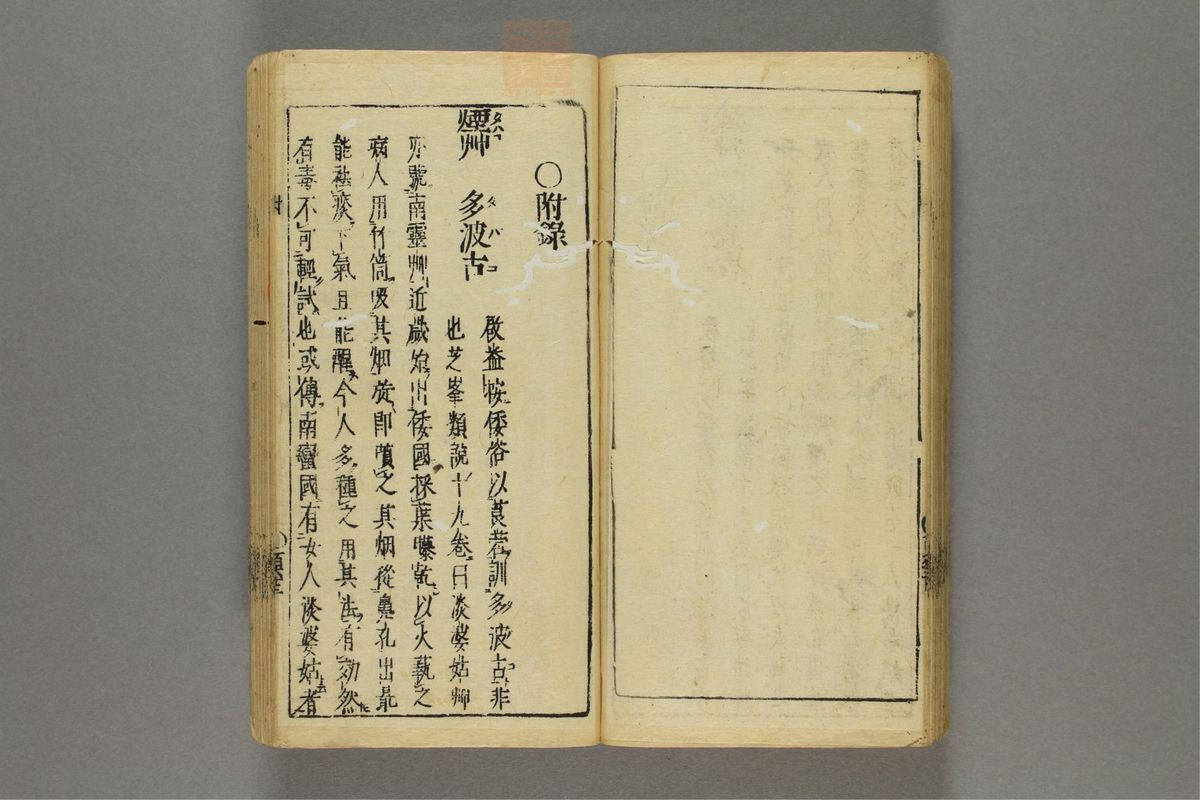 ○附錄
煙艸 多波古
啟益按倭俗以莨菪訓多波古非
也芝峯類說十九卷曰淡婆姑艸
亦號南靈艸近歲始出倭國採葉曝乾以火爇之
病人用竹筒吸其烟旋即噴之其烟從鼻孔出最
能祛痰下氣且能醒今人多種之用其法有効然
有毒不可輕試也或傳南蠻國有女人淡婆姑者